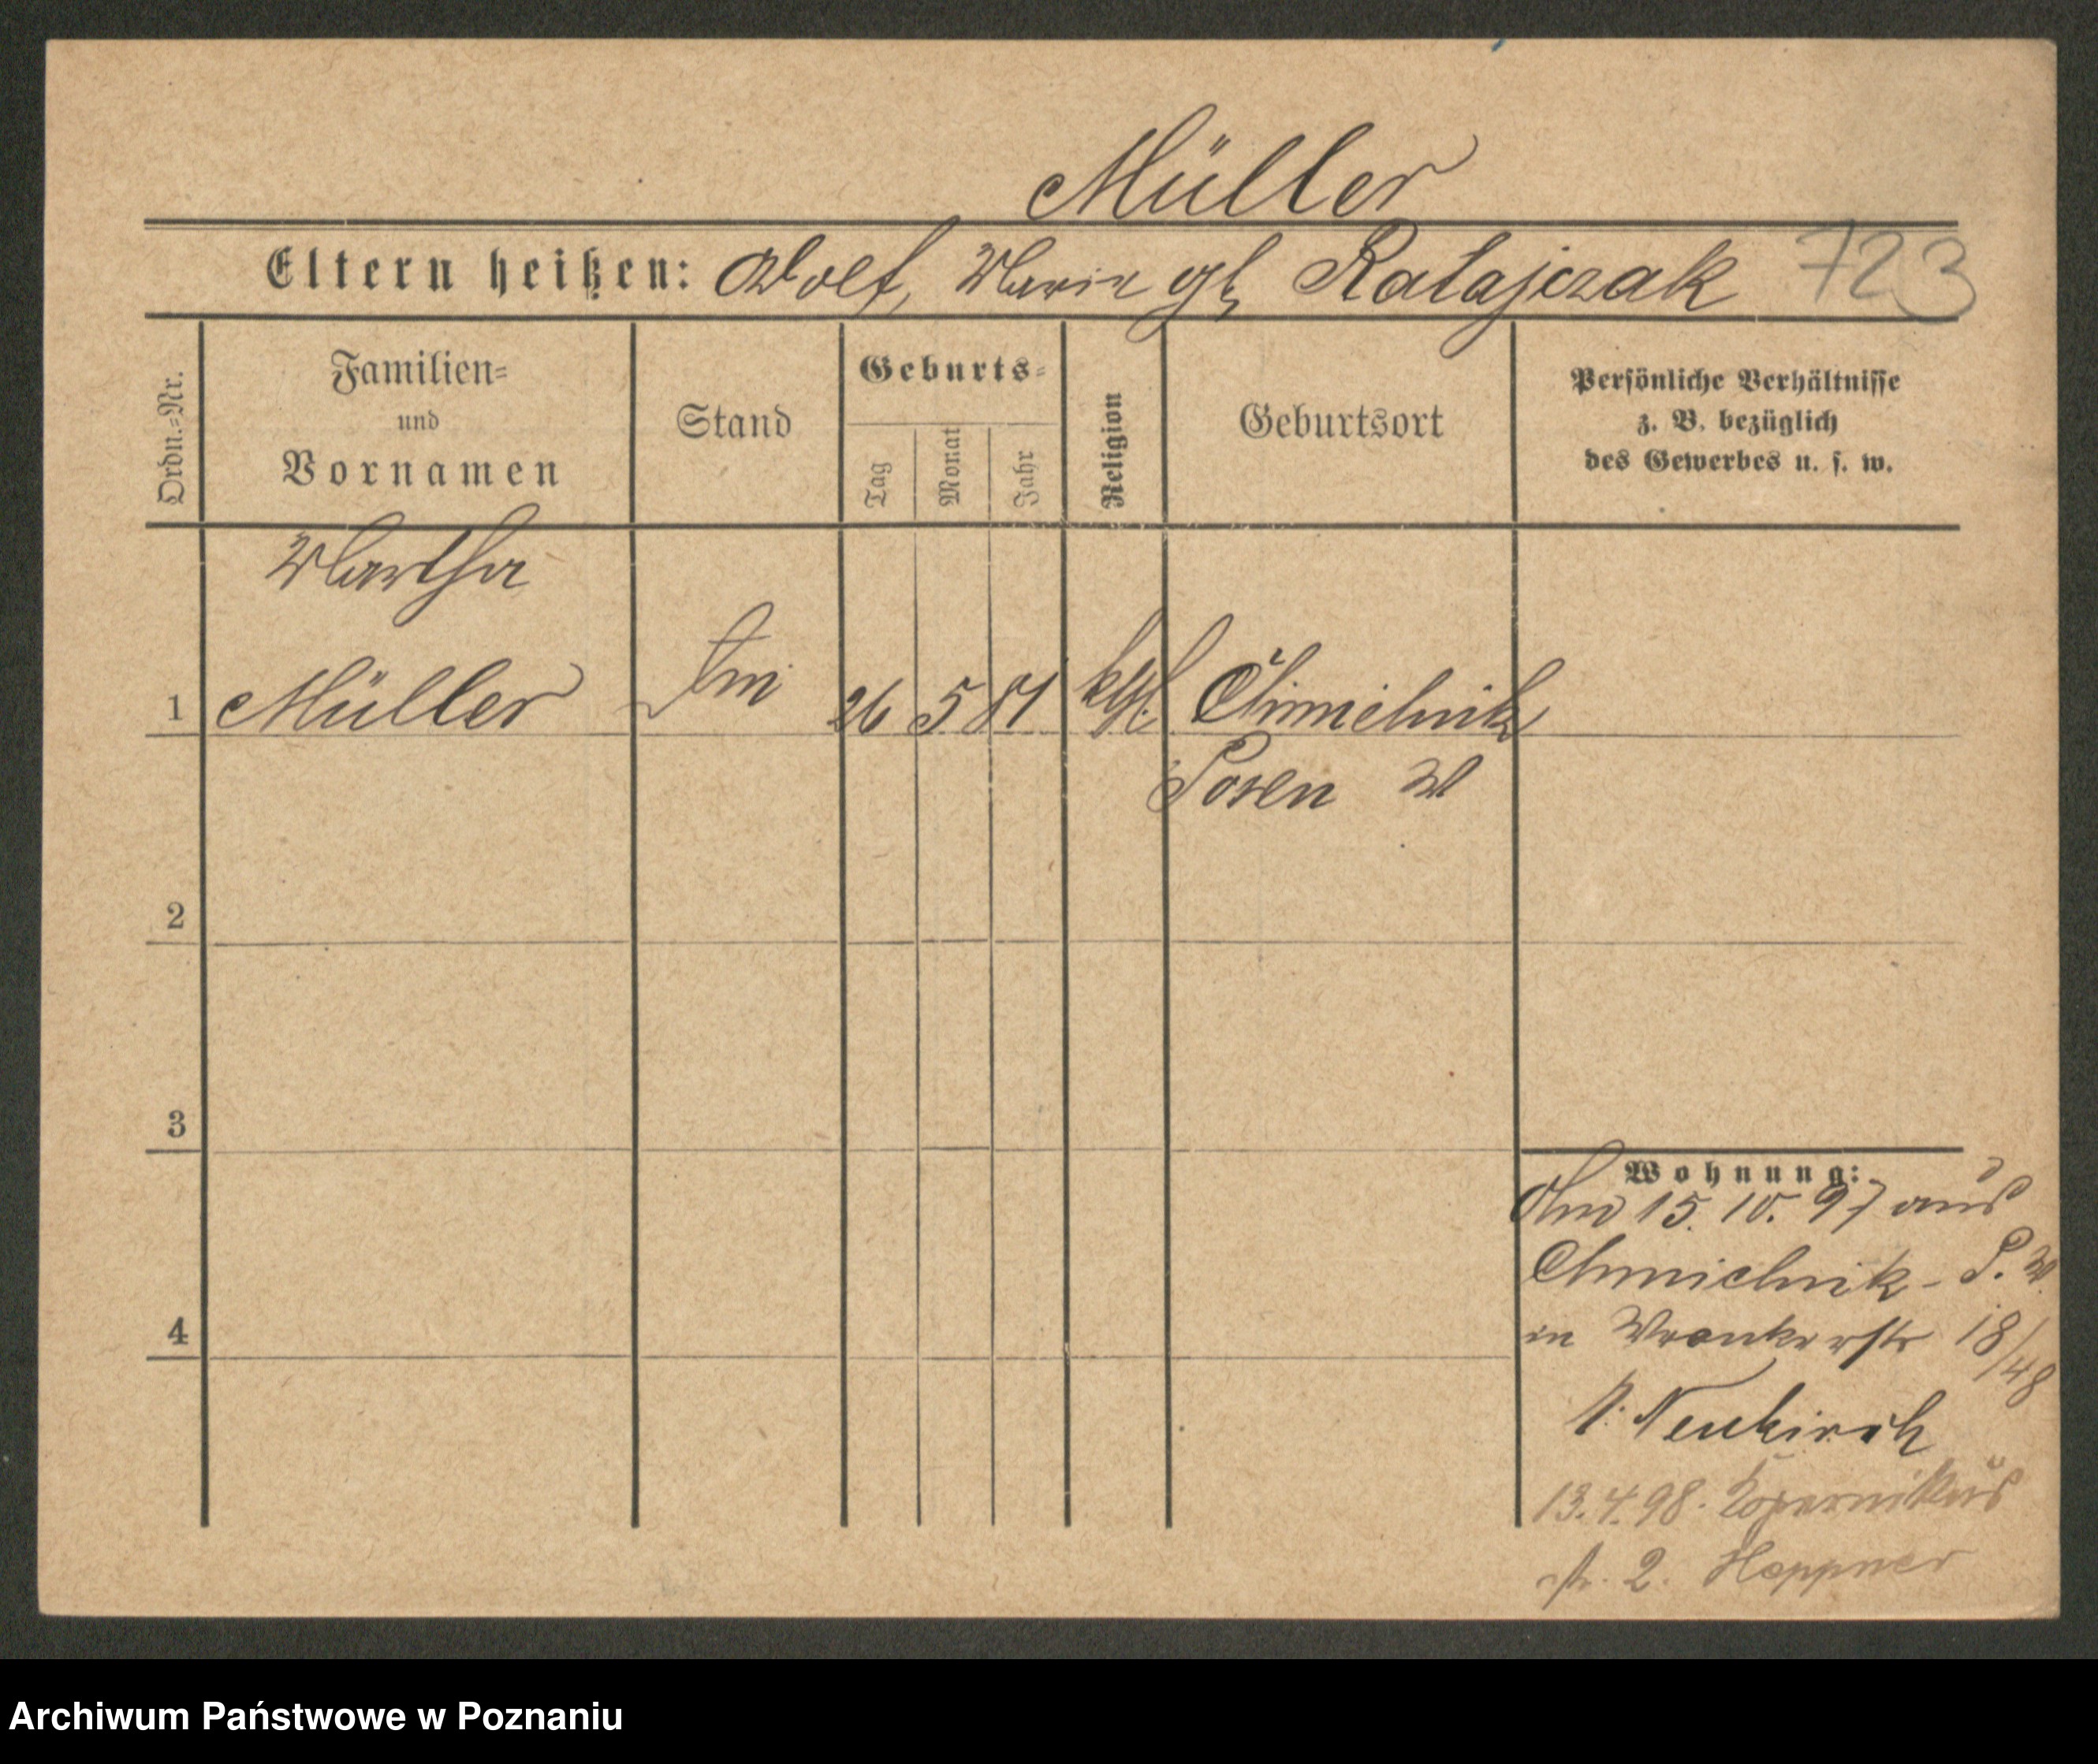 Müller
Eltern heißen: Adolf, Maria gb Ratajczak 723
Ordn.-Nr.
Familien-
und
Vornamen
Stand
Geburts-
Tag
Monat
Jahr
Religion
Geburtsort
Persönliche Verhältnisse
z. B. bezüglich
des Gewerbes u. s. w.
Martha
1 Müller 26 5 81 Chmielnik
Posen W
2
3
Wohnung:
15. 10. 97 aus
Chmielnik - P. W.
4
in Wronkerstr 18/48
Neukirch
13.4.98. Kopernikus
str. 2. Hoppner
Archiwum Państwowe w Poznaniu